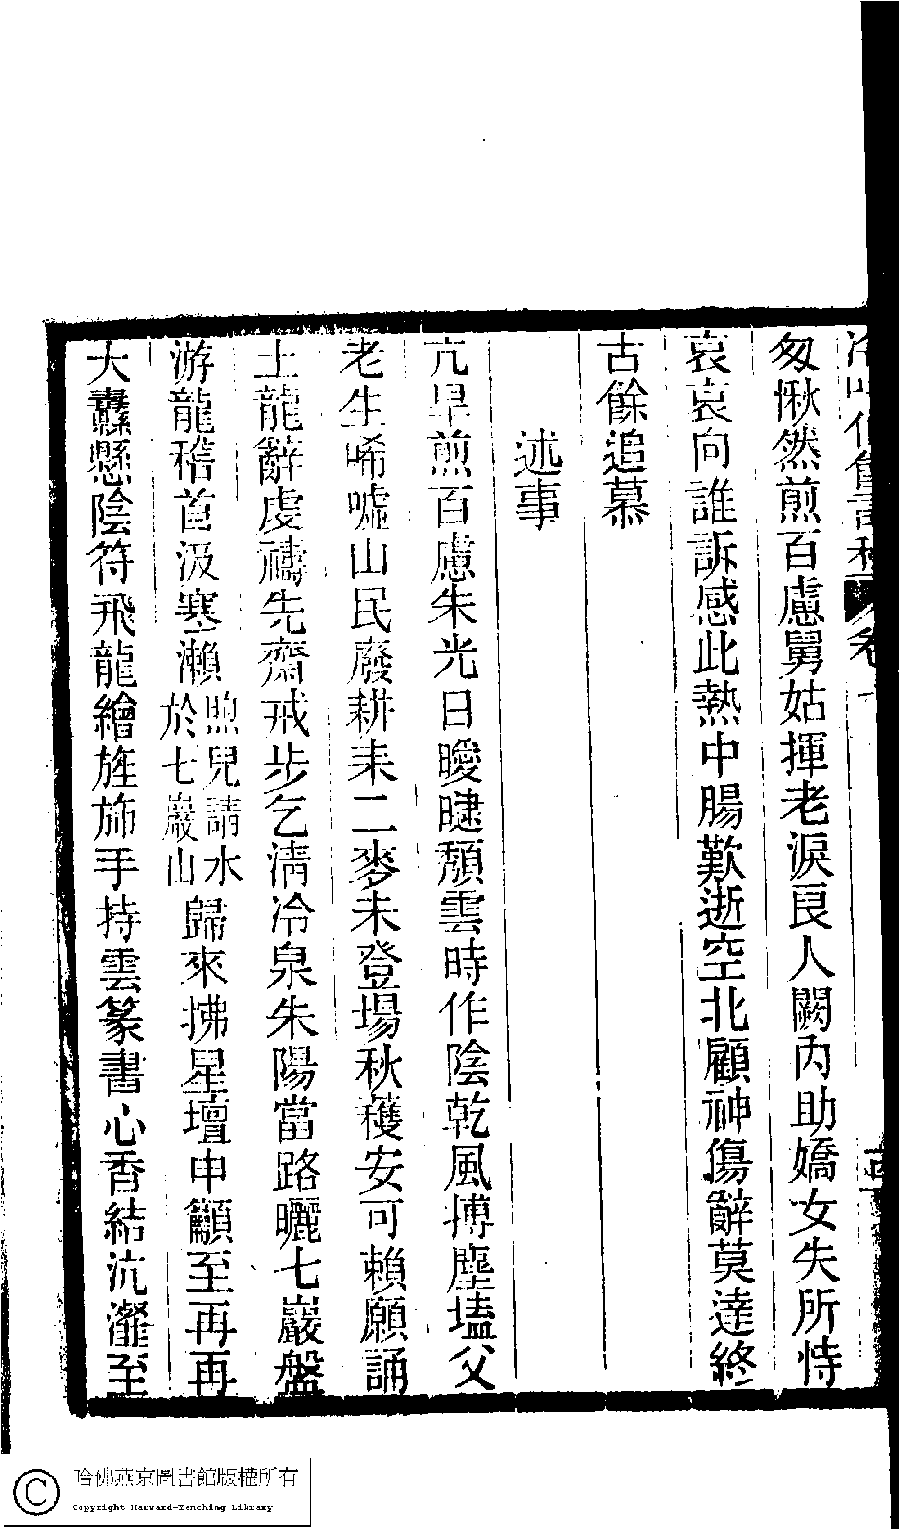 匆愀然煎百慮舅姑揮老淚良人闕內助嬌女失所恃
哀哀向誰訴感此熱中腸歎逝空北顧神傷辭莫達終
古餘追慕
述事
亢旱煎百慮朱光日曖㬠頹雲時作陰乾風摶塵壒父
老生唏噓山民廢耕耒二麥未登場秋穫安可賴願誦
土龍辭虔禱先齋戒步乞清冷泉朱陽當路曬七巖盤
游龍稽首汲寒瀨煦兒請水於七巖山歸來拂星壇申籲至再再
大纛懸陰符飛龍繪旌斾手持雲篆書心香結沆瀣至
哈佛燕京圖書館版權所有
Copyright Harvard-Yenching Library